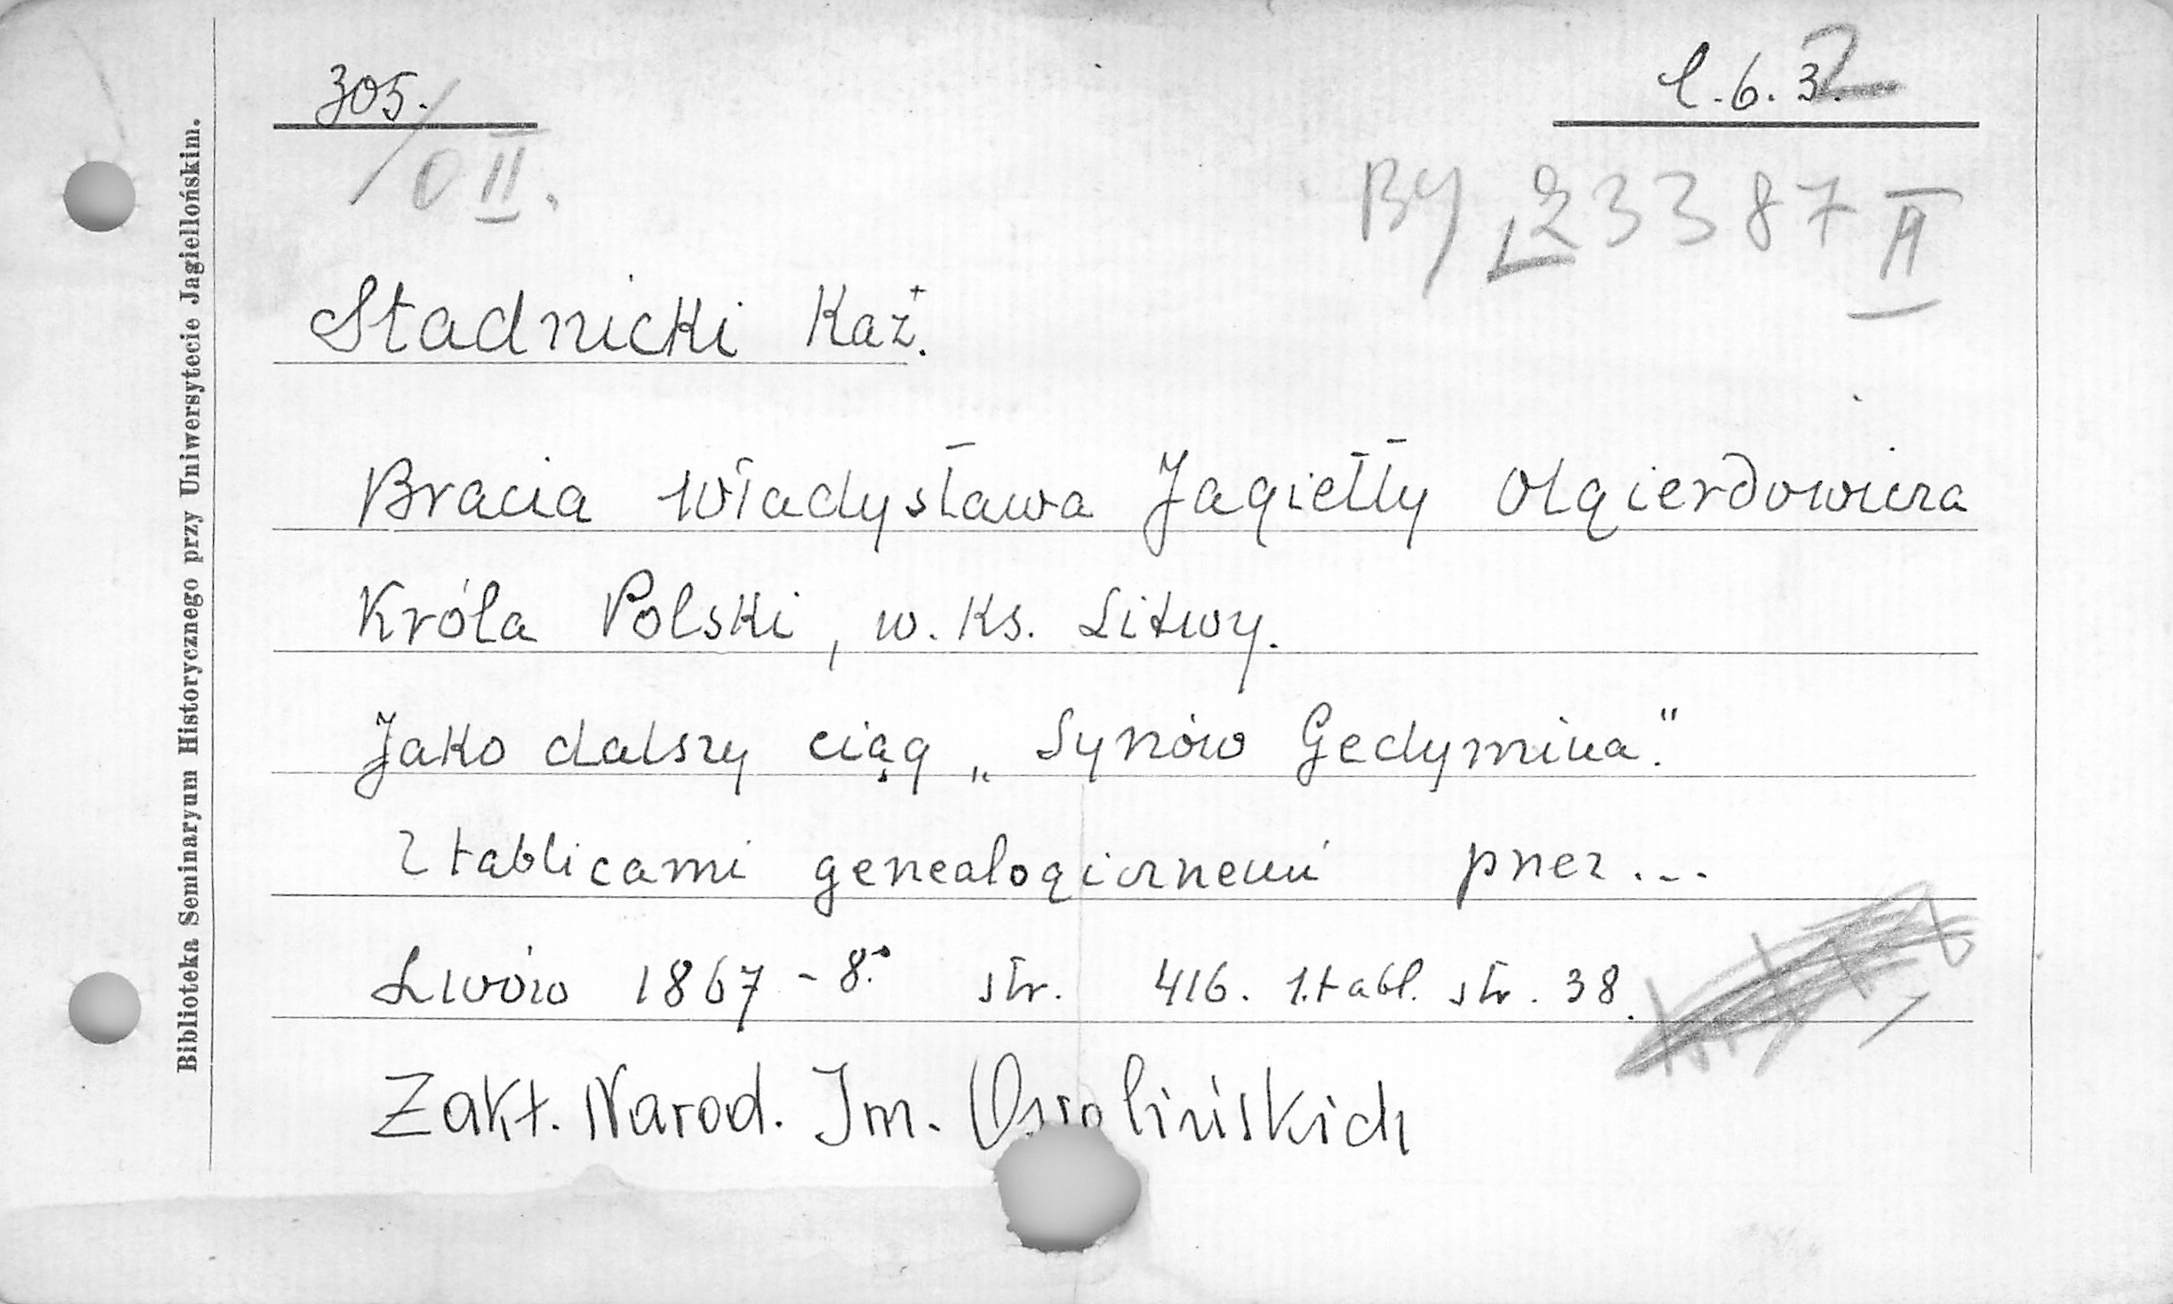 305.
l. 6. 32
/0 II.
By 23387 II
Stadnicki Kaź.
Bracia Władysława Jagiełły Olgierdowicza
Króla Polski, w. Ks. Litwy.
Jako dalszy ciąg „Synów Gedymina."
Z tablicami genealogicznemi przez ...
Lwów 1867 - 8.° str. 416. 1.tabl. str. 38.
Zakł. Narod. Im. Ossolińskich
Biblioteka Seminaryum Historycznego przy Uniwersytecie Jagiellońskim.